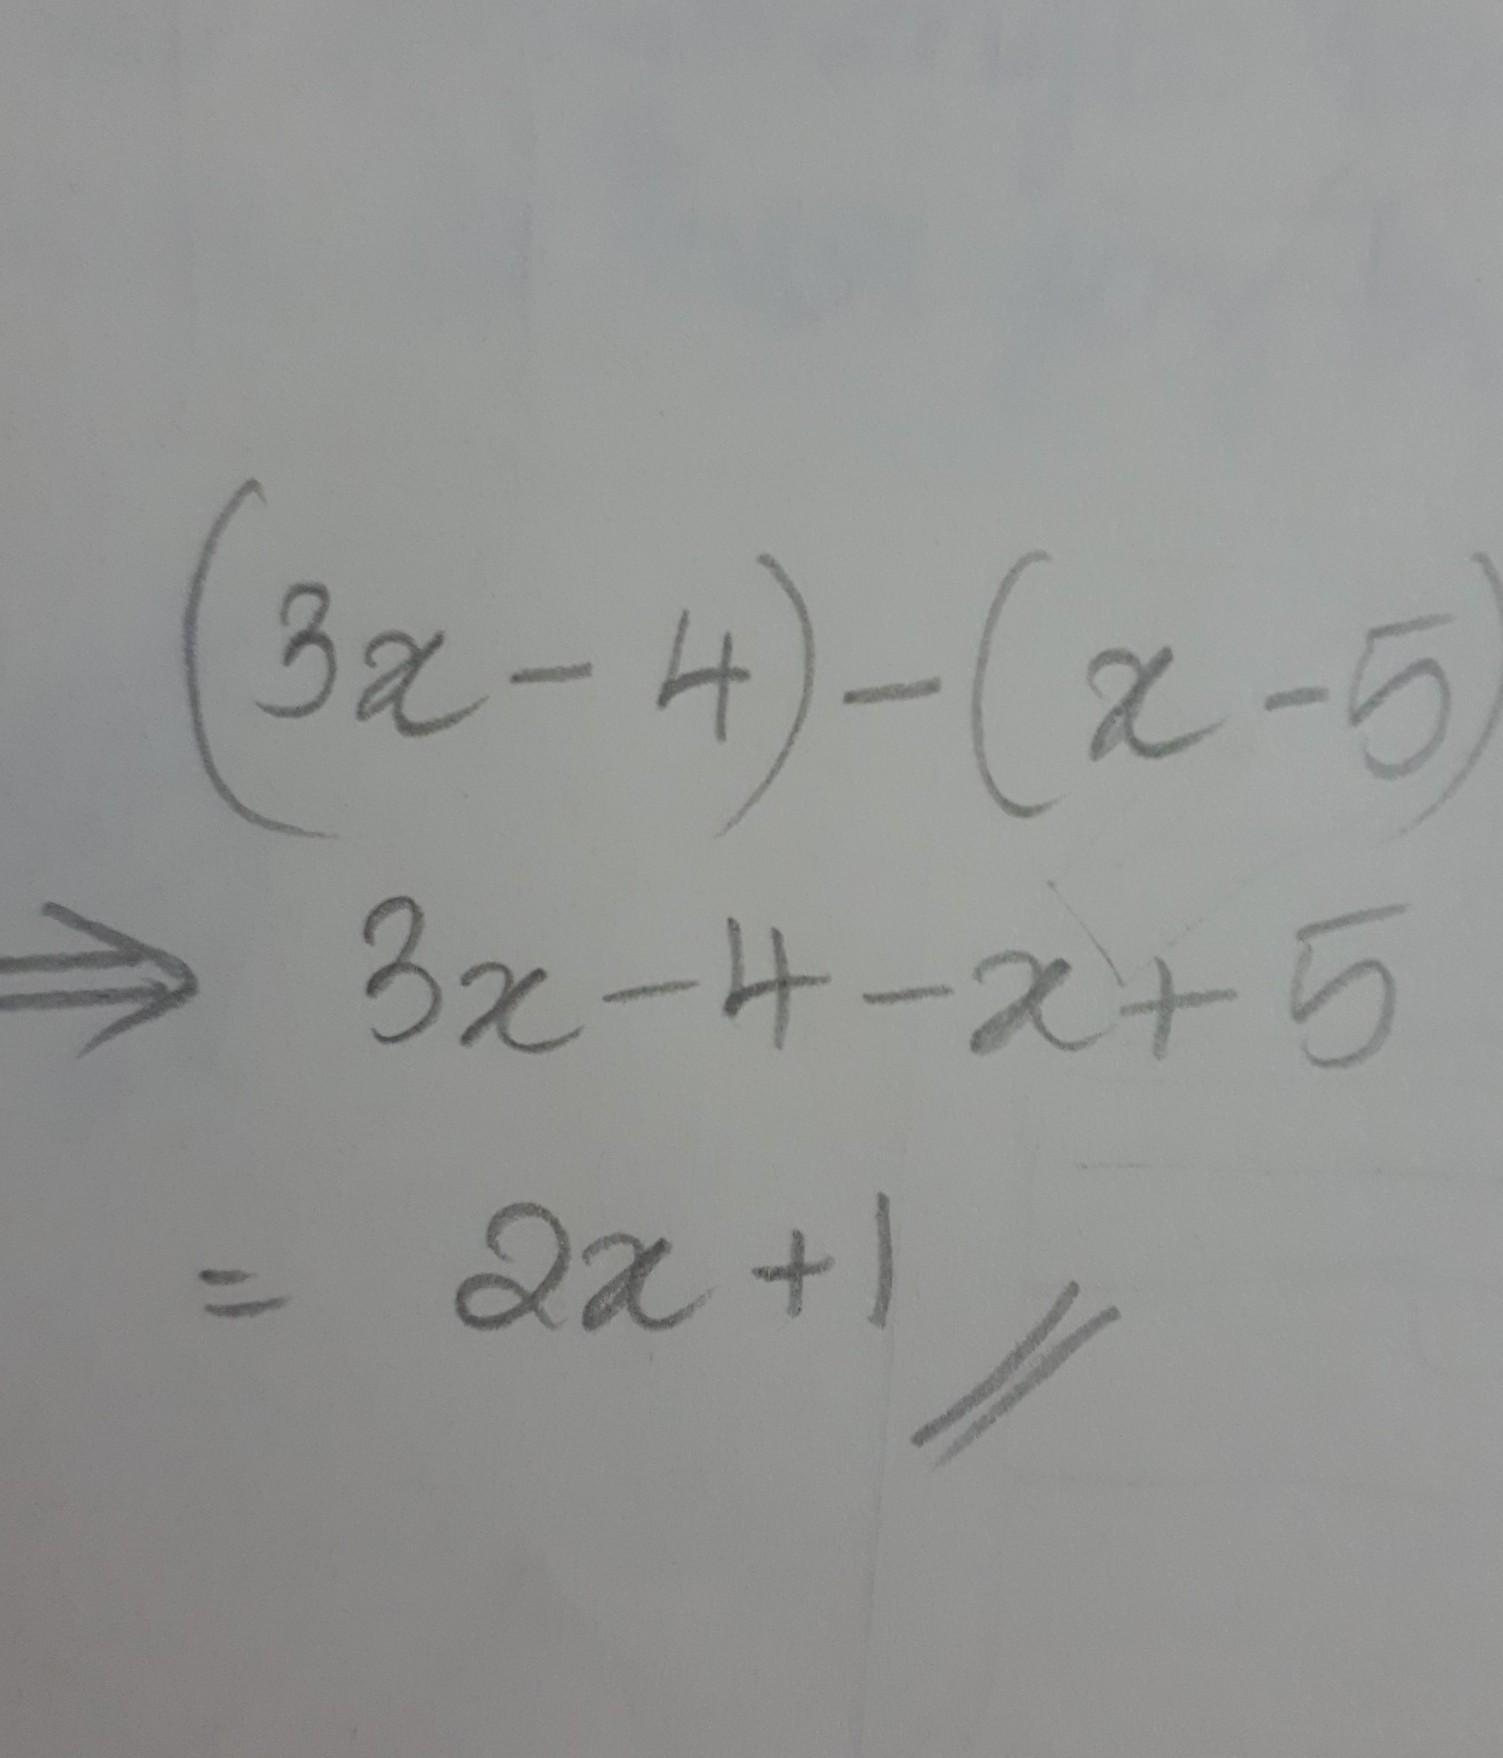 (3x - 4) - (x - 5)
⇒ 3x - 4 - x + 5
= 2x + 1 //